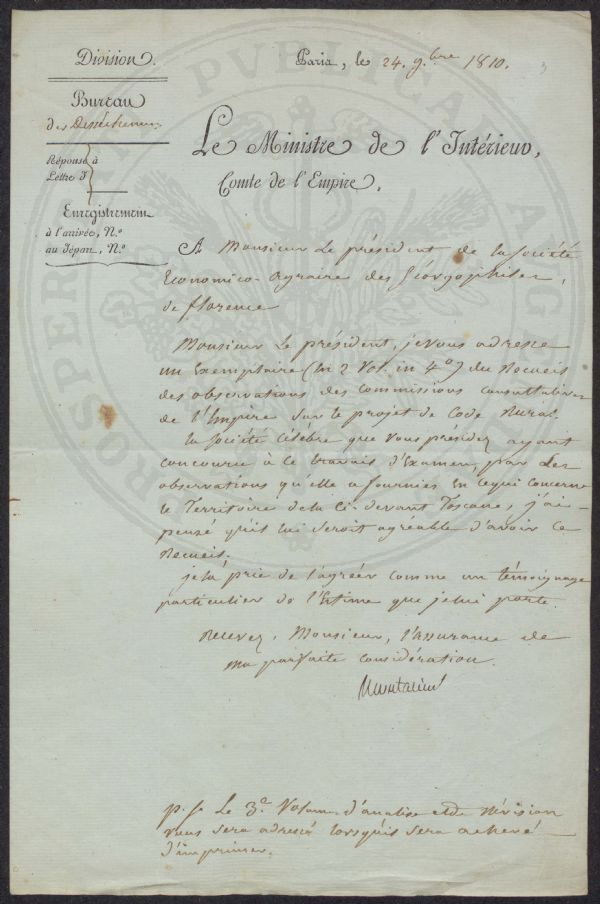 Division.
Bureau
des Dessèchemens
Réponse à
Lettre J
Enregistrement
à l'arrivée, N.º
au Départ, N.º
Paris, le 24. 9.bre 1810.
3
Le Ministre de l'Intérieur,
Comte de l'Empire,
A Monsieur Le président de la Société
Economico-Agraire des Géorgophiles,
de florence
Monsieur Le président, je vous adresse
un Exemplaire (En 2 Vol. in 4º) du Recueil
des observations des Commissions Consultatives
de l'Empire sur le projet de Code Rural.
la Société Célèbre que vous présidez ayant
concouru à ce travail d'Examen, par Les
observations qu'elle a fournies En ce qui concerne
le Territoire de la Ci-devant Toscane, j'ai
pensé qu'il lui seroit agréable d'avoir ce
Recueil.
je la prie de l'agréer comme un témoignage
particulier de l'Estime que je lui porte.
Recevez, Monsieur, l'assurance de
ma parfaite considération.
Montalivet
p. s. Le 3.e Volume d'analise et de Révision
vous sera adressé lorsqu'il sera achevé
d'imprimer.
PROSPERITATI PUBLICAE AUGENDAE